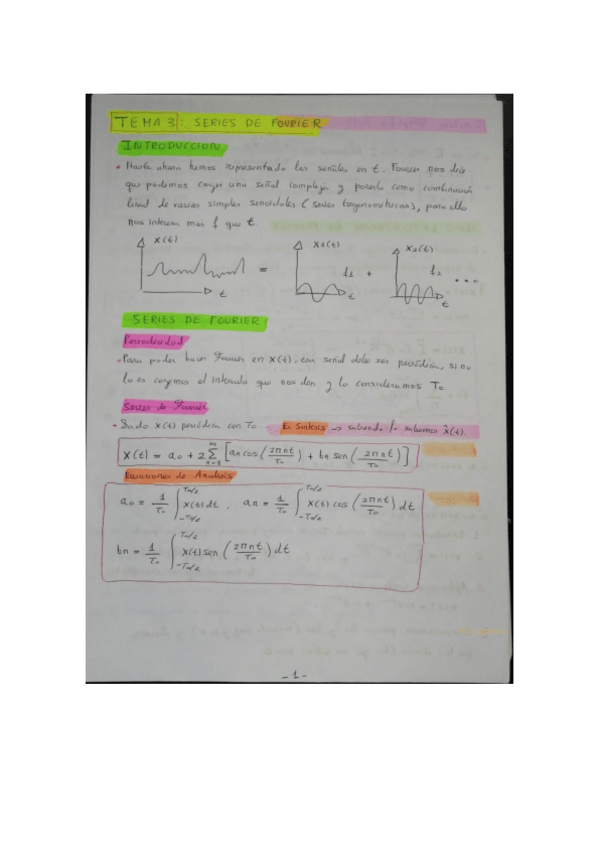 TEMA 3: SERIES DE FOURIER
INTRODUCCION
• Hasta ahora hemos representado las señales en t. Fourier nos dice
que podemos coger una señal compleja y ponerla como combinación
lineal de varias simples senoidales (series trigonometricas), para ello
nos interesa mas f que t.
x(t) x1(t) x2(t)
= f1 + f2 ...
t t t
SERIES DE FOURIER
Periodicidad
• Para poder hacer Fourier en x(t), esa señal debe ser periódica, si no
lo es cogemos el intervalo que nos den y lo consideramos To
Series de Fourier
• Dado x(t) periódica con To Ec Sintesis → sabiendo fo sabemos x̂(t).
x(t) = a0 + 2 ∑_{n=1}^{∞} [an cos(2πnt/To) + bn sen(2πnt/To)]
Ecuaciones de Analisis
a0 = 1/To ∫_{-To/2}^{To/2} x(t) dt, an = 1/To ∫_{-To/2}^{To/2} x(t) cos(2πnt/To) dt
bn = 1/To ∫_{-To/2}^{To/2} x(t) sen(2πnt/To) dt
-1-